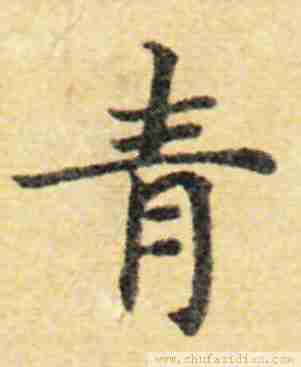 青
www.shufazidian.com